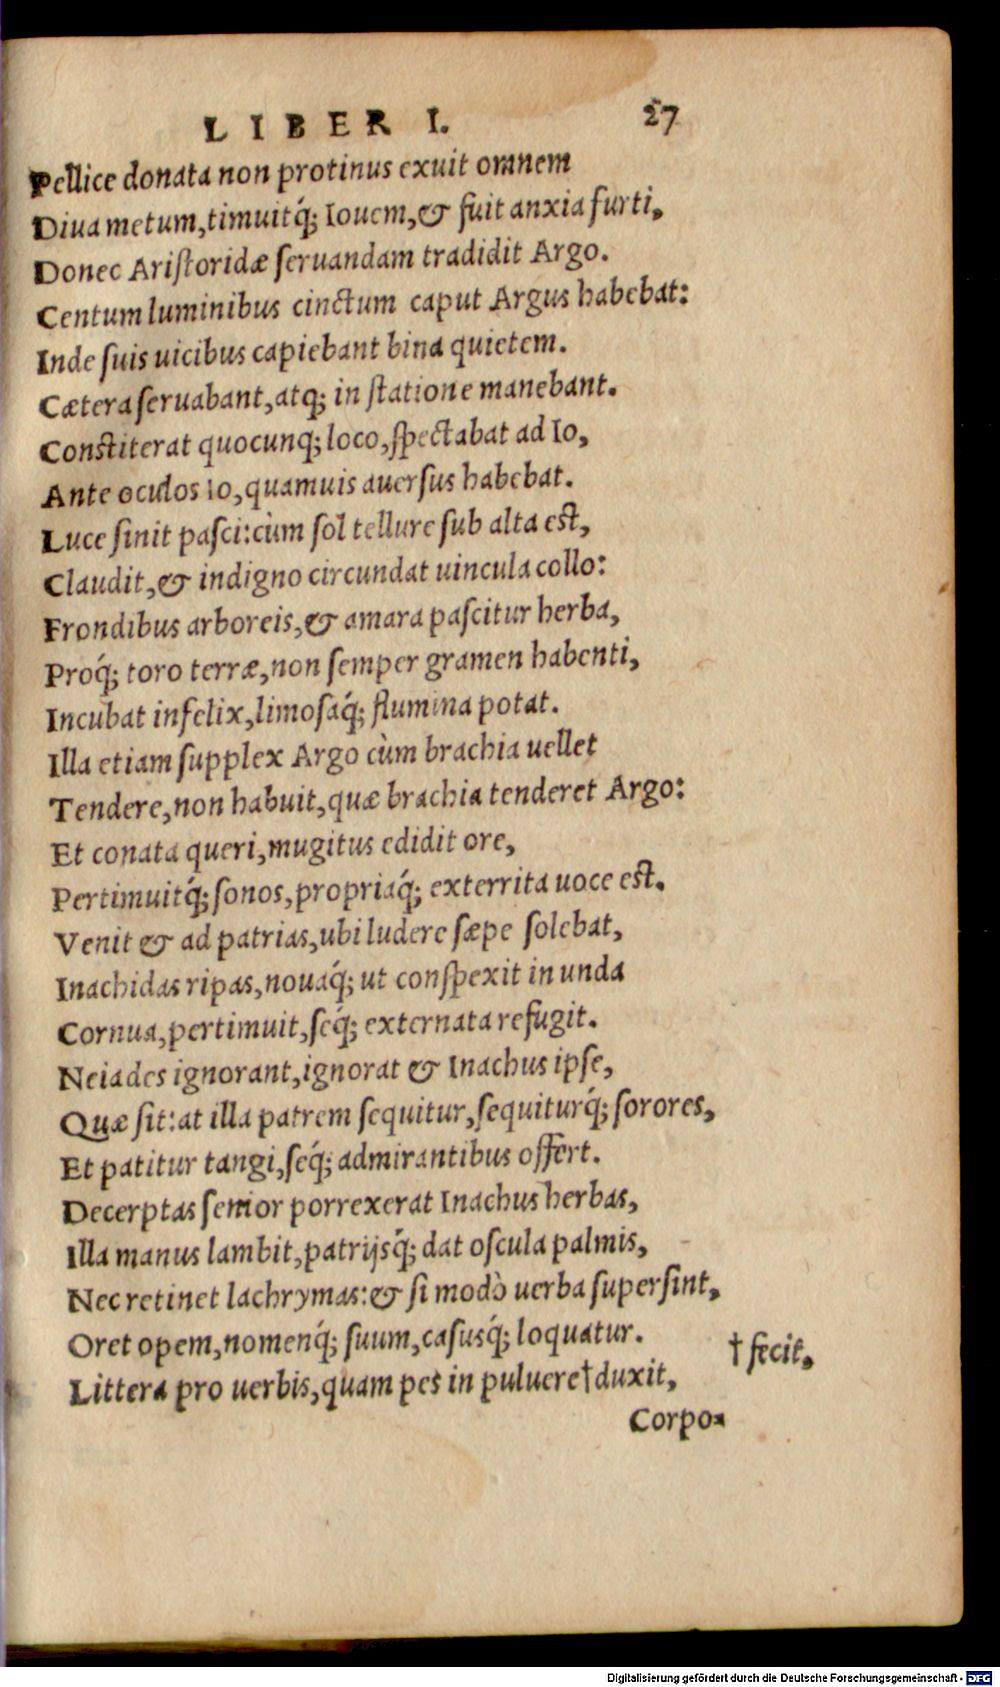 LIBER I. 27
Pellice donata non protinus exuit omnem
Diua metum,timuitq́; Iouem,& fuit anxia furti,
Donec Aristoridæ seruandam tradidit Argo.
Centum luminibus cinctum caput Argus habebat:
Inde suis uicibus capiebant bina quietem.
Cætera seruabant,atq; in statione manebant.
Constiterat quocunq; loco,spectabat ad Io,
Ante oculos Io,quamuis auersus habebat.
Luce sinit pasci:cùm sol tellure sub alta est,
Claudit,& indigno circundat uincula collo:
Frondibus arboreis,& amara pascitur herba,
Proq́; toro terræ,non semper gramen habenti,
Incubat infelix,limosaq́; flumina potat.
Illa etiam supplex Argo cùm brachia uellet
Tendere,non habuit,quæ brachia tenderet Argo:
Et conata queri,mugitus edidit ore,
Pertimuitq́; sonos,propriaq́; exterrita uoce est.
Venit & ad patrias,ubi ludere sæpe solebat,
Inachidas ripas,nouaq́; ut conspexit in unda
Cornua,pertimuit,seq́; externata refugit.
Neiades ignorant,ignorat & Inachus ipse,
Quæ sit:at illa patrem sequitur,sequiturq́; sorores,
Et patitur tangi,seq́; admirantibus offert.
Decerptas senior porrexerat Inachus herbas,
Illa manus lambit,patrijsq́; dat oscula palmis,
Nec retinet lachrymas:& si modò uerba supersint,
Oret opem,nomenq́; suum,casusq́; loquatur.
Littera pro uerbis,quam pes in puluere†duxit,
† fecit,
Corpo-
Digitalisierung gefördert durch die Deutsche Forschungsgemeinschaft - DFG